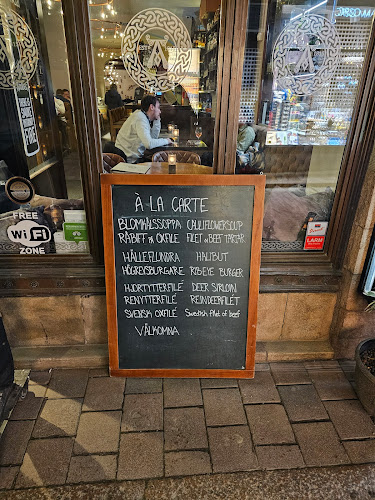 FREE
Wi Fi
ZONE
LARM
À LA CARTE
BLOMKÅLSSOPPA CAULIFLOWERSOUP
RÅBIFF PÅ OXFILE FILET OF BEEF TARTAR
HÄLLEFLUNDRA HALIBUT
HÖGREVSBURGARE RIBEYE BURGER
HJORTYTTERFILÉ DEER SIRLOIN
RENYTTERFILÉ REINDEERFILÉT
SVENSK OXFILÉ Swedish filet of beef
VÄLKOMNA